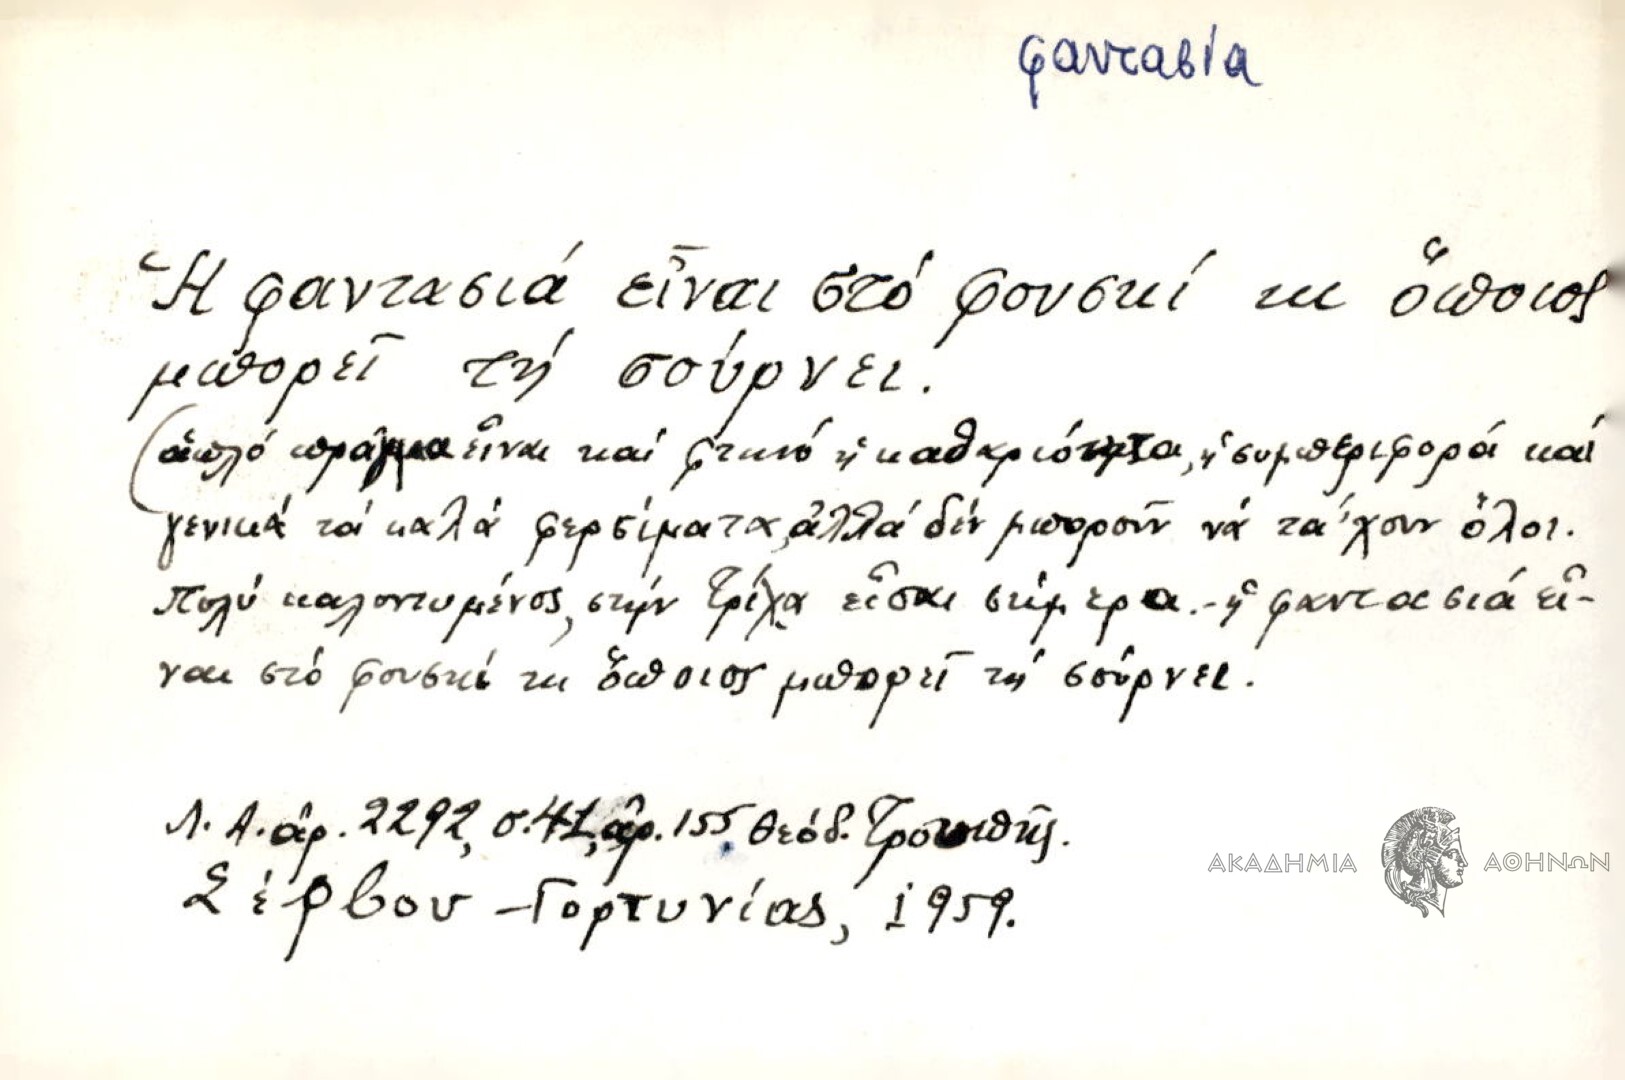 φαντασία
Ἡ φαντασιά εἶναι στό φουσκί κι ὅποιος
μπορεῖ τή σούρνει.
(ἁπλό πρᾶγμα εἶναι καί φτηνό ἡ καθαριότητα, ἡ συμπεριφορά καί
γενικά τά καλά φερσίματα, ἀλλά δέν μποροῦν νά τά 'χουν ὅλοι.
Πολύ καλοντυμένος, στήν τρίχα εἶσαι σήμερα. - ἡ φαντασιά εἶ-
ναι στό φουσκί κι ὅποιος μπορεῖ τή σούρνει.
Λ. Α. ἀρ. 2292, σ. 41, ἀρ. 155 Θεόδ.
Σέρβου - Γορτυνίας, 1959.
ΑΚΑΔΗΜΙΑ ΑΘΗΝΩΝ